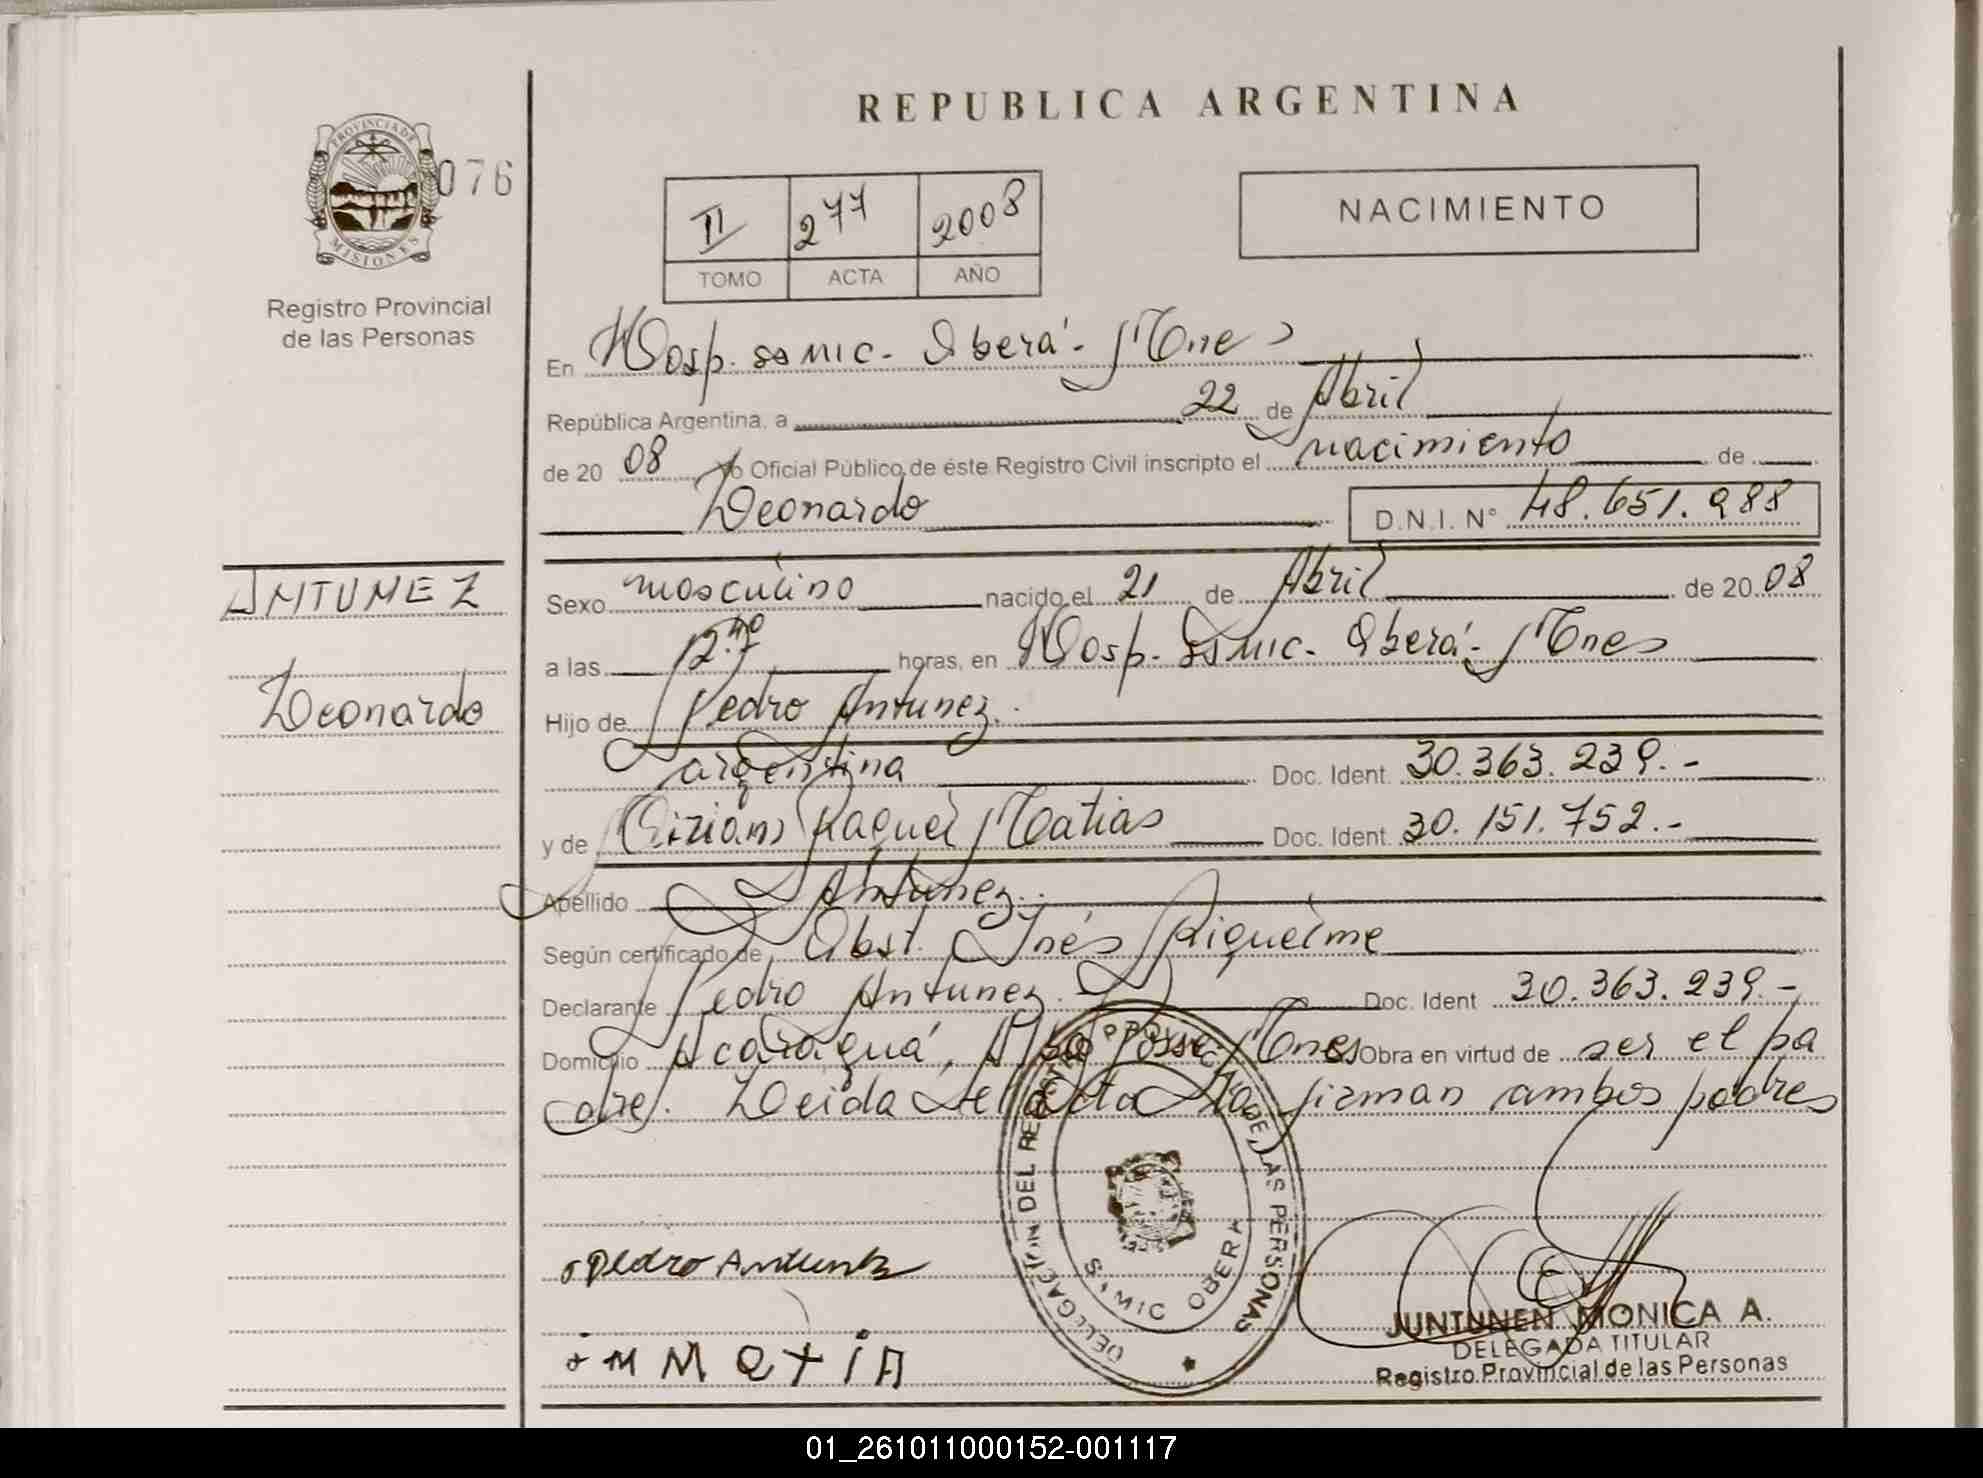 REPUBLICA ARGENTINA
PROVINCIA DE
MISIONES
076
Registro Provincial
de las Personas
II 277 2008
TOMO ACTA AÑO
NACIMIENTO
En Hosp. Samic - Oberá - Mnes
República Argentina, a 22 de Abril
de 20 08 Yo Oficial Público de éste Registro Civil inscripto el nacimiento de
Leonardo D.N.I. N° 48.651.988
ANTUNEZ
Leonardo
Sexo masculino nacido el 21 de Abril de 20 08
a las 12.40 horas, en Hosp. Samic - Oberá - Mnes
Hijo de Pedro Antunez.
argentina Doc. Ident. 30.363.239.-
y de Miriam Raquel Matias Doc. Ident. 30.151.752.-
Apellido Antunez.
Según certificado de Obst. Inés Riquelme
Declarante Pedro Antunez. Doc. Ident 30.363.239.-
Domicilio Acaraguá, Alba Posse - Mnes Obra en virtud de ser el pa
dre. Leida el acta la firman ambos padres
DELEGACION DEL REGISTRO PROVINCIAL DE LAS PERSONAS
SAMIC OBERA
Pedro Antunez
JUNTUNEN MONICA A.
DELEGADA TITULAR
Registro Provincial de las Personas
01_261011000152-001117